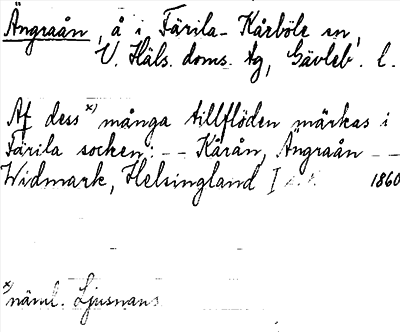 Ängraån, å i Färila-Kårböle sn,
V. Häls. doms. tg, Gävleb. l.
Af dess x) många tillflöden märkas i
Färila socken: -- Kårån, Ängraån --
Widmark, Helsingland I 1860
x) näml. Ljusnans